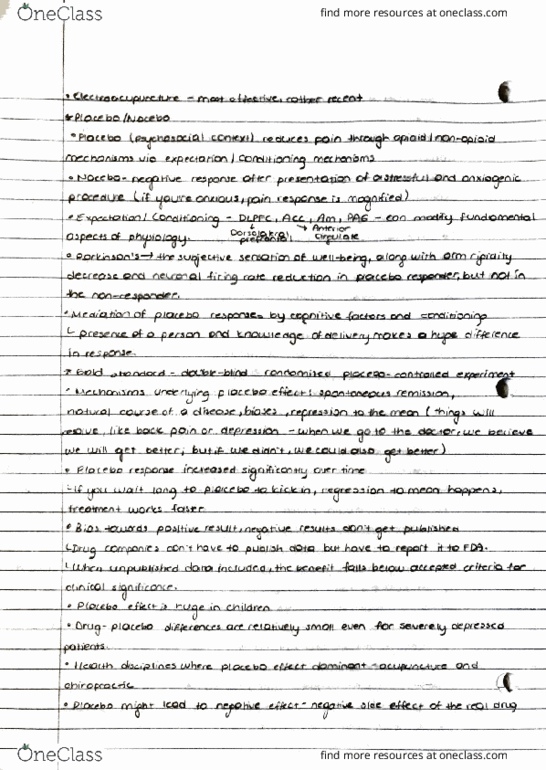 OneClass
find more resources at oneclass.com
• Electroacupuncture - most effective, rather recent
* Placebo/Nocebo
• Placebo (psychosocial context) reduces pain through opioid/non-opioid
mechanisms via expectation/conditioning mechanisms
• Nocebo - negative response after presentation of a stressful and anxiogenic
procedure (if you're anxious, pain response is magnified)
• Expectation/Conditioning - DLPFC, ACC, Am, PAG - can modify fundamental
aspects of physiology. Dorsolateral prefrontal → Anterior Cingulate
• Parkinson's → the subjective sensation of well-being, along with arm rigidity
decrease and neuronal firing rate reduction in placebo responder, but not in
the non-responder.
• Mediation of placebo responses by cognitive factors and conditioning
↳ presence of a person and knowledge of delivery makes a huge difference
in response.
* Gold standard - double-blind randomised placebo-controlled experiment
• Mechanisms underlying placebo effect: spontaneous remission,
natural course of a disease, biases, regression to the mean (things will
resolve, like back pain or depression - when we go to the doctor, we believe
we will get better; but if we didn't, we could also get better)
• Placebo response increased significantly over time
- If you wait long to placebo to kick in, regression to mean happens,
treatment works faster
• Bias towards positive result, negative results don't get published
↳ Drug companies don't have to publish data but have to report it to FDA.
↳ When unpublished data included, the benefit falls below accepted criteria for
clinical significance.
• Placebo effect is huge in children
• Drug-placebo differences are relatively small even for severely depressed
patients.
• Health disciplines where placebo effect dominant - acupuncture and
chiropractic
• Placebo might lead to negative effect - negative side effect of the real drug
OneClass
find more resources at oneclass.com